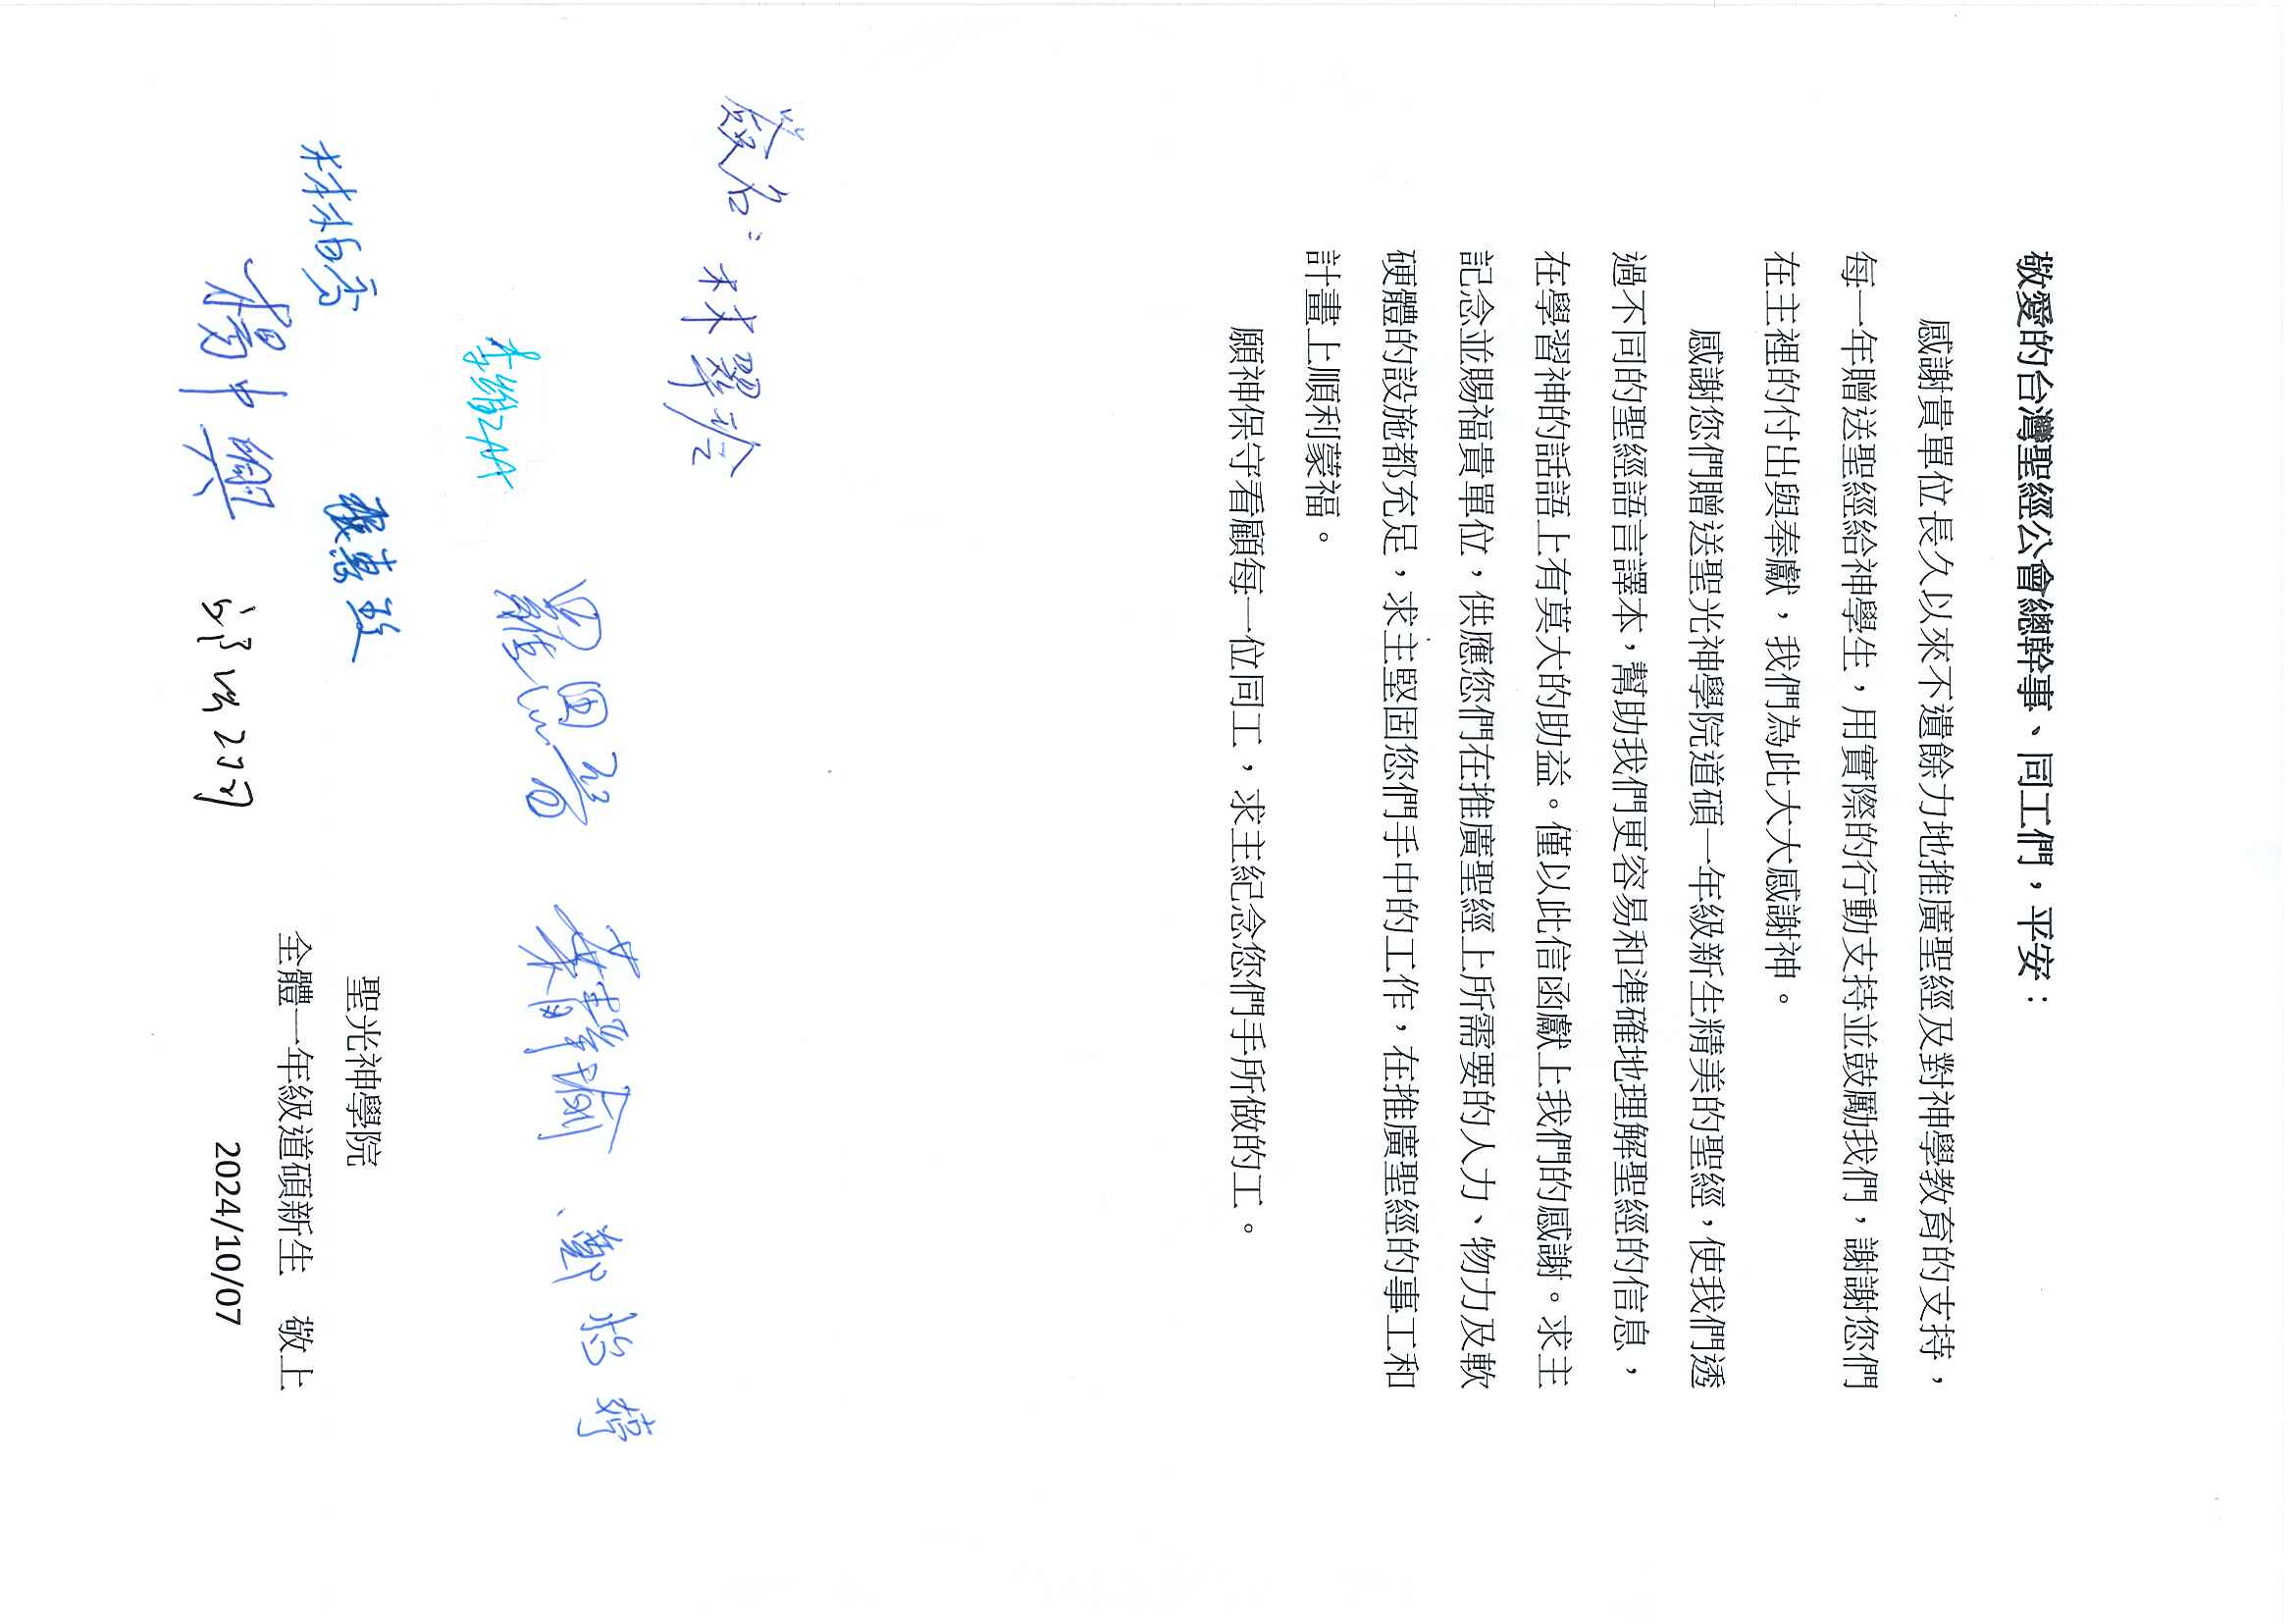 敬愛的台灣聖經公會總幹事、同工們，平安：
感謝貴單位長久以來不遺餘力地推廣聖經及對神學教育的支持，
每一年贈送聖經給神學生，用實際的行動支持並鼓勵我們，謝謝您們
在主裡的付出與奉獻，我們為此大大感謝神。
感謝您們贈送聖光神學院道碩一年級新生精美的聖經，使我們透
過不同的聖經語言譯本，幫助我們更容易和準確地理解聖經的信息，
在學習神的話語上有莫大的助益。僅以此信函獻上我們的感謝。求主
記念並賜福貴單位，供應您們在推廣聖經上所需要的人力、物力及軟
硬體的設施都充足，求主堅固您們手中的工作，在推廣聖經的事工和
計畫上順利蒙福。
願神保守看顧每一位同工，求主紀念您們手所做的工。
簽名：林翠玲
羅恩
林柏彥
張惠
楊中
聖光神學院
全體一年級道碩新生　敬上
2024/10/07